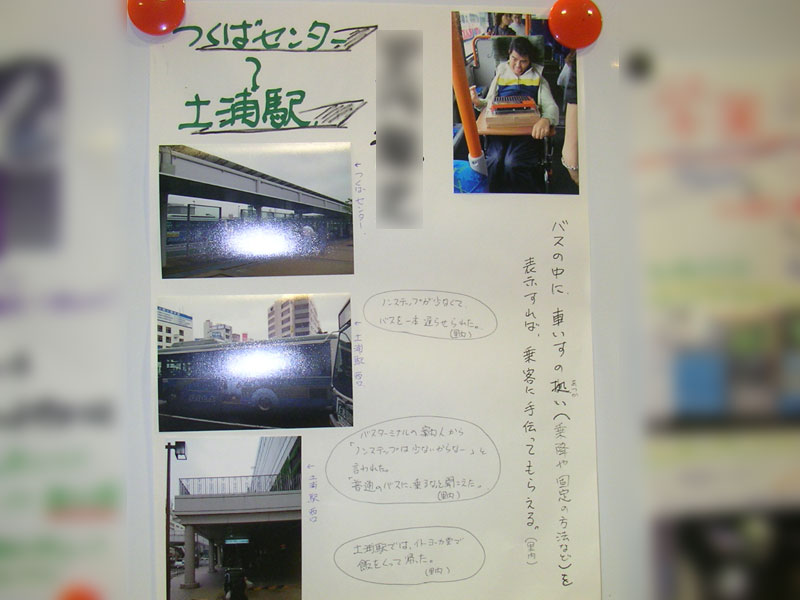 つくばセンター
〜
土浦駅
←つくばセンター
←土浦駅西口
←土浦駅西口
ノンステップが少なくて、
バスを一本遅らせられた。
バスターミナルの
「ノンステップは少ないからな〜」と
言われた。
土浦駅では、イトーヨーカ堂で
飯をくって帰った。
バスの中に、車いすの扱い(乗降や固定の方法など)を
表示すれば、乗客に手伝ってもらえる。